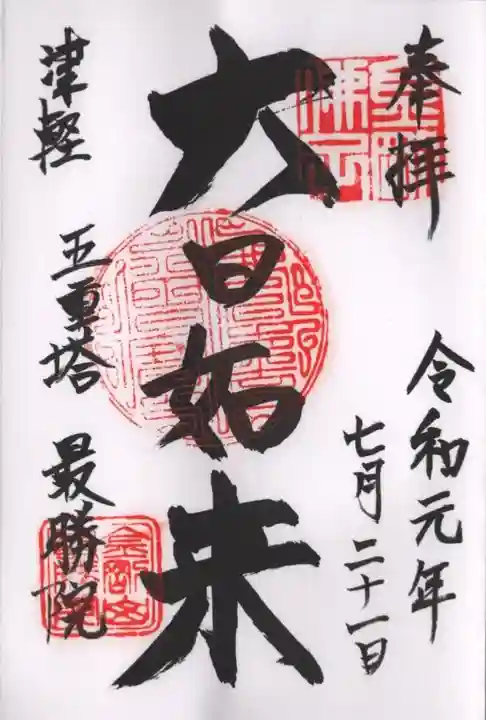 奉拝
令和元年
七月二十一日
大日如来
津軽
五重塔
最勝院